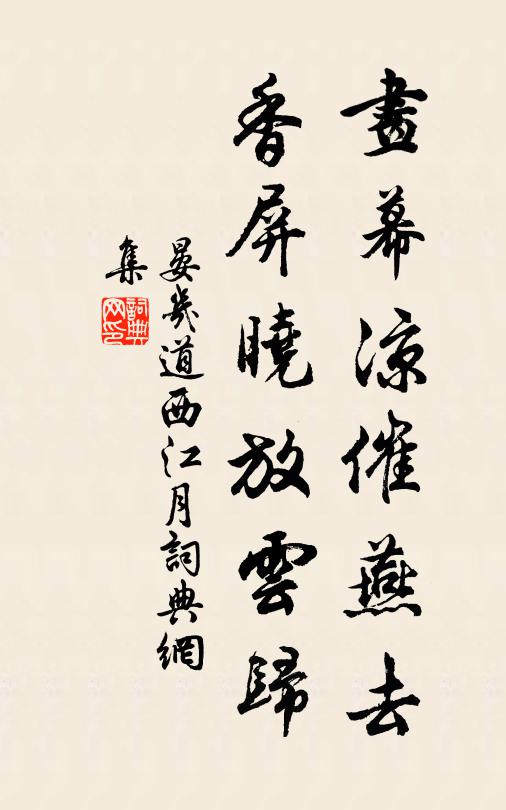 畫幕凉催燕去
香屏曉放雲歸
晏幾道西江月詞典網
集
詞典
网印